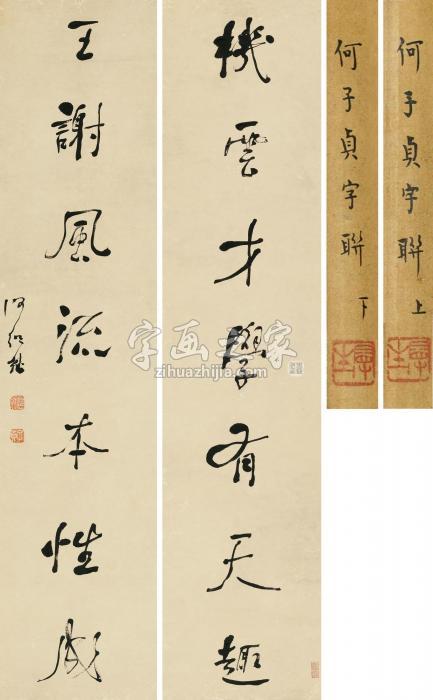 機雲才學有天趣
王謝風流本性成
何紹基
何子貞字聯 上
何子貞字聯 下
字画之家
zihuazhijia.com